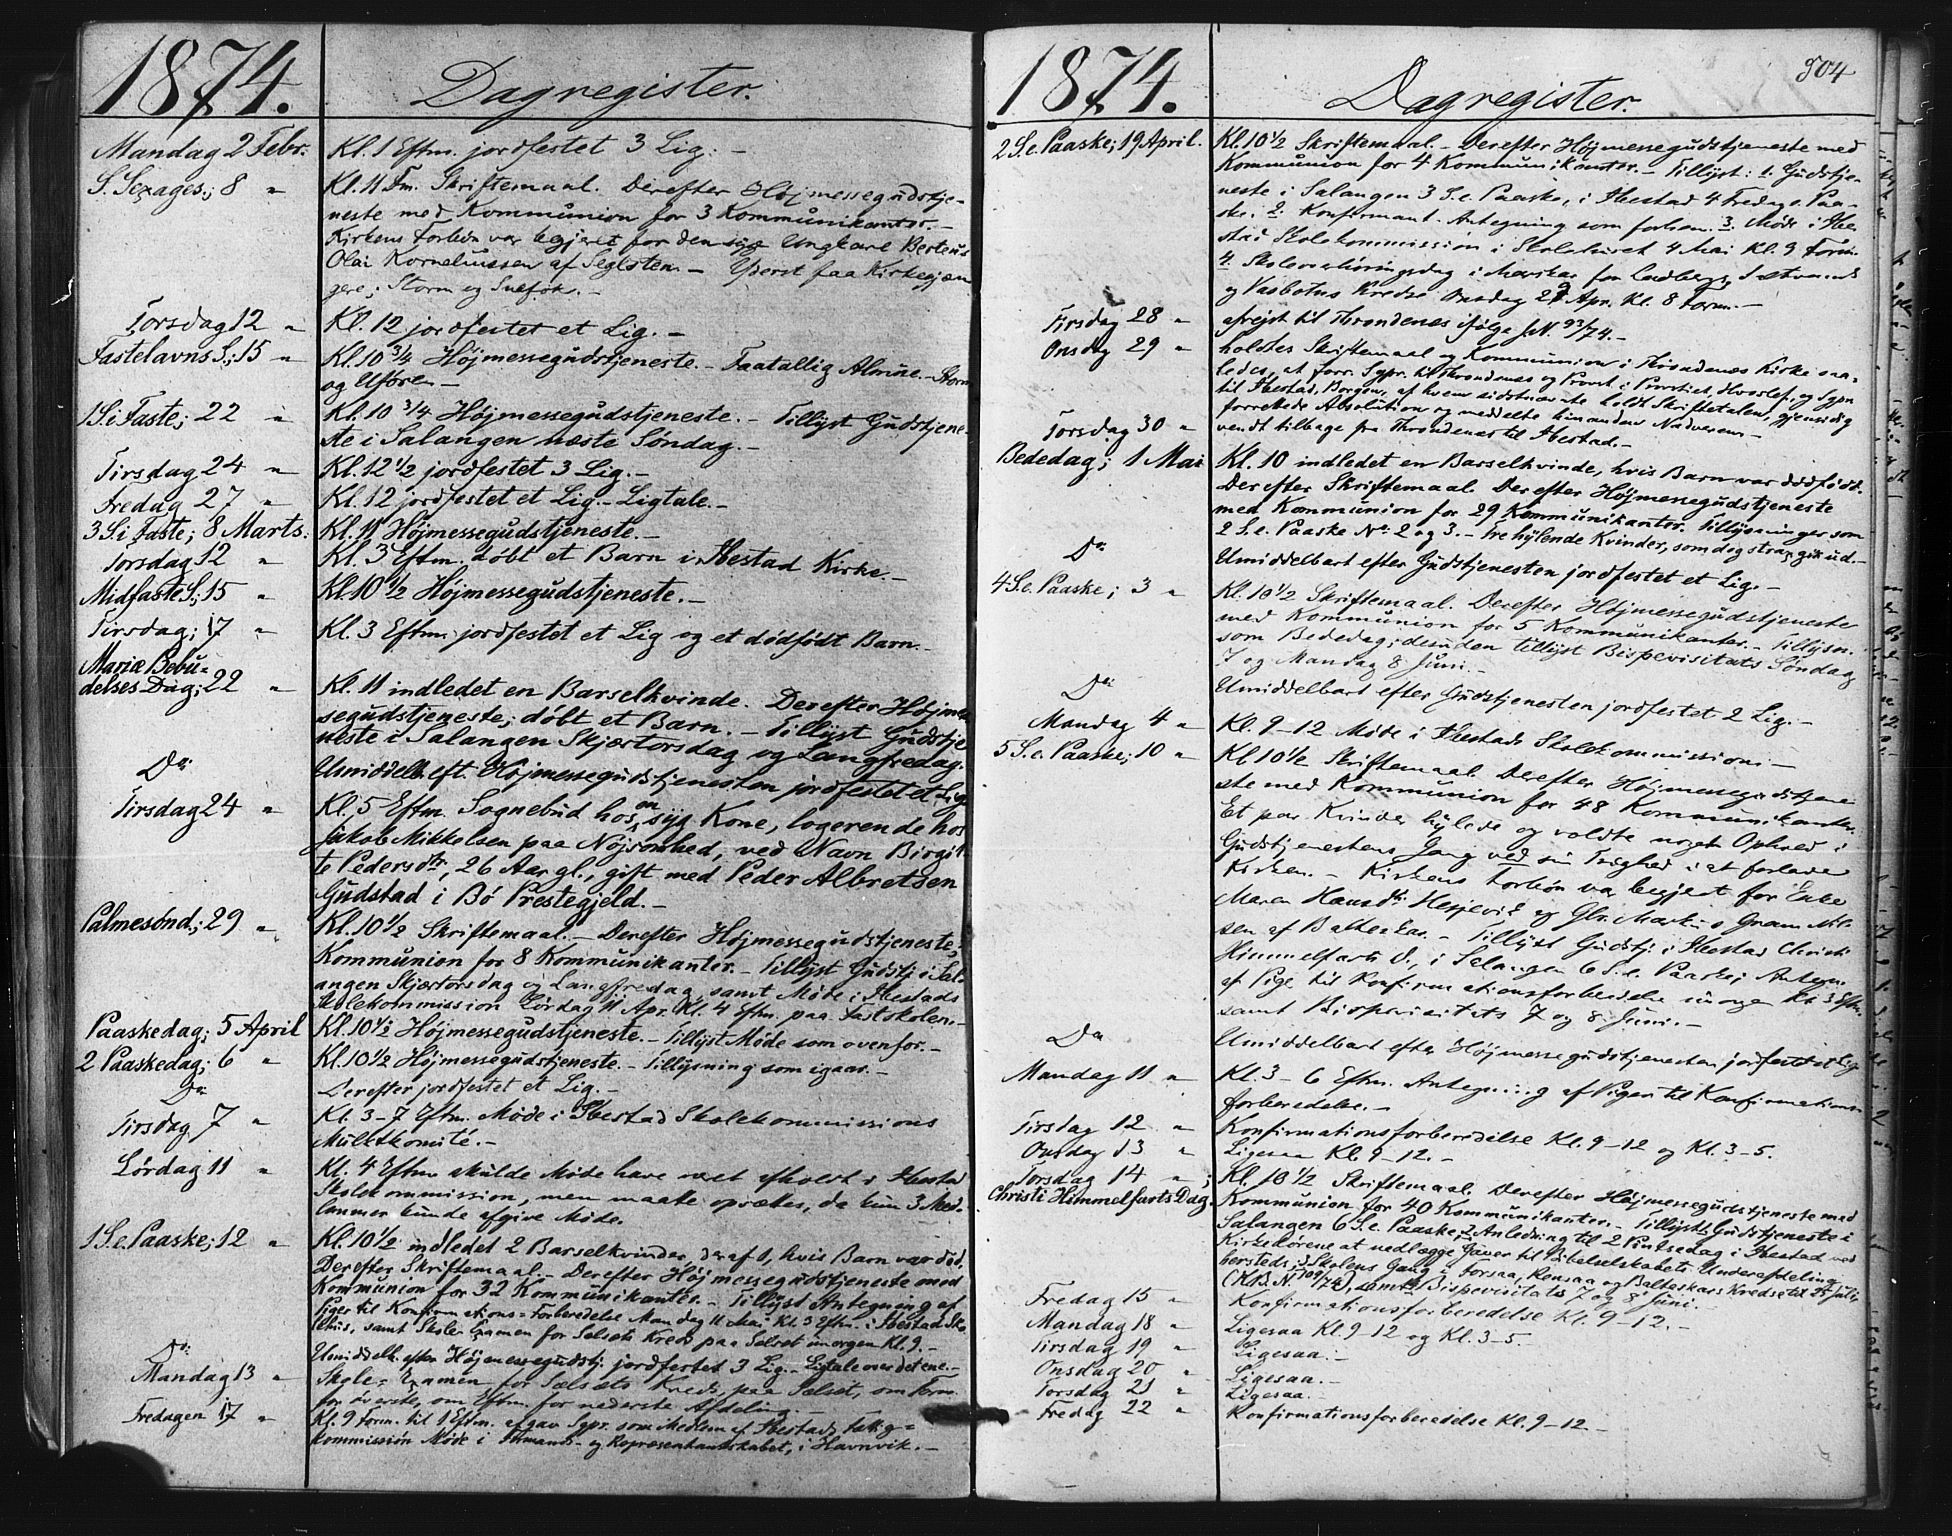 1874.
Dagregister.
Mandag 2 Febr. Kl. 1 Eftm. jordfestet 3 Lig. —
S. Sexages; 8 " Kl. 11 Fm. Skriftemaal. Derefter Højmessegudstje-
neste med Kommunion for 3 Kommunikanter. —
Kirkens Forbøn var begjeret for den syge Ungkarl Berteus
Olai Korneliussen af — Yderst faa Kirkegjæn
gere; Storm og Snefok. —
Torsdag 12 " Kl. 12 jordfestet et Lig. —
Fastelavns S.; 15 " Kl. 10 3/4 Højmessegudstjeneste. — Faatallig Almue. — Storm
og Uføre. —
1 S. i Faste; 22 " Kl. 10 3/4 Højmessegudstjeneste. — Tillyst Gudstjene-
ste i Salangen næste Søndag. —
Tirsdag 24 " Kl. 12 1/2 jordfestet 3 Lig. —
Fredag 27 " Kl. 12 jordfestet et Lig. — Ligtale. —
3 S. i Faste; 8 Marts. Kl. 11 Højmessegudstjeneste. —
Torsdag 12 " Kl. 3 Eftm. døbt et Barn i Ibestad Kirke. —
Midfaste S.; 15 " Kl. 10 1/2 Højmessegudstjeneste. —
Tirsdag; 17 " Kl. 3 Eftm. jordfestet et Lig og et dødfødt Barn. —
Mariæ Bebu-
delses Dag; 22 " Kl. 11 indledet en Barselkvinde. Derefter Højmes-
segudstjeneste; døbt et Barn. — Tillyst Gudstje
neste i Salangen Skjærtorsdag og Langfredag.
Do Umiddelb. eft. Højmessegudstjenesten jordfestet et Lig.
Tirsdag 24 " Kl. 5 Eftm. Sognebud hos en syg Kone, logerende hos
Jakob Mikkelsen paa Nøjsomhed, ved Navn Birgit
te Pedersdtr, 26 Aar gl., gift med Peder Albretsen
Gudstad i Bö Prestegjeld. —
Palmesønd.; 29 " Kl. 10 1/2 Skriftemaal. — Derefter Højmessegudstjeneste;
Kommunion for 8 Kommunikanter. — Tillyst Gudstj. i Sal-
angen Skjærtorsdag og Langfredag, samt Møde i Ibestads
Skolekommission Lördag 11 Apr. Kl. 4 Eftm. paa Fastskolen. —
Paaskedag; 5 April Kl. 10 1/2 Højmessegudstjeneste. — Tillyst Møde som ovenfor. —
2 Paaskedag; 6 " Kl. 10 1/2 Højmessegudstjeneste. — Tillysning som igaar. —
Do Derefter jordfestet et Lig. —
Tirsdag 7 " Kl. 3–7 Eftm. Møde i Ibestad Skolekommissions
Mulktkomité. —
Lördag 11 " Kl. 4 Eftm. skulde Møde have været afholdt i Ibestad
Skolekommission, men maatte opsættes, da kun 3 Med-
lemmer kunde afgive Møde.
1 S. e. Paaske; 12 " Kl. 10 1/2 indledet 2 Barselkvinder, deraf 1, hvis Barn var død.
Derefter Skriftemaal. — Derefter Højmessegudstjeneste med
Kommunion for 32 Kommunikanter. — Tillyst Antegning af
Piger til Konfirmations-Forberedelse Mandag 11 Mai Kl. 3 Eftm. i Ibestad Sko
lehus, samt Skole-Examen for Sælsets Kreds paa Sælset imorgen Kl. 9. —
Do Umiddelb. efter Højmessegudstj. jordfestet 3 Lig. — Ligtale over det ene. —
Mandag 13 " Skole-Examen for Sælsets Kreds, paa Sælset, om Form.
for øverste, om Eftm. for nederste Afdeling. —
Fredagen 17 " Kl. 9 Form. til 1 Eftm. afgav Sgpr. som Medlem af Ibestads
kommission Møde i Formands- og Repræsentantskabet, i Havnvik. —
1874.
Dagregister.
504
2 S. e. Paaske; 19 April. Kl. 10 1/2 Skriftemaal. — Derefter Højmessegudstjeneste med
Kommunion for 4 Kommunikanter. — Tillyst: 1. Gudstje-
neste i Salangen 3 S. e. Paaske, i Ibestad 4 Fredag e. Paa-
ske. 2. Konfirmant-Antegning som forhen. 3. Møde i Ibe-
stad Skolekommission i Skolehuset 4 Mai Kl. 9 Form.
4. Skoleoverhøringsdag i for
og Kredse Onsdag Apr. Kl. 8 Form. —
Tirsdag 28 " afrejst til Throndenæs ifølge JN. 93/74. —
Onsdag 29 " holdtes Skriftemaal og Kommunion i Throndenæs Kirke saa-
ledes, at forr. Sgpr. til Throndenæs og Provst i Provstiet, og Sgpr.
til Ibestad, Borgen, af hvem sidstnævnte holdt Skriftetalen, gjensidig
forrettede Absolution og meddelte hinanden Nadveren. —
Torsdag 30 " vendt tilbage fra Throndenæs til Ibestad. —
Bededag; 1 Mai Kl. 10 indledet en Barselkvinde, hvis Barn var dødfødt.
Derefter Skriftemaal. Derefter Højmessegudstjeneste
med Kommunion for 29 Kommunikanter. Tillysninger som
2 S. e. Paaske No 2 og 3. — Tre hylende Kvinder, som dog strax gik ud. —
Do Umiddelbart efter Gudstjenesten jordfestet et Lig. —
4 S. e. Paaske; 3 " Kl. 10 1/2 Skriftemaal. Derefter Højmessegudstjeneste
med Kommunion for 5 Kommunikanter. — Tillysn.
som Bededag; desuden tillyst Bispevisitats Söndag
7 og Mandag 8 Juni. —
Do Umiddelbart efter Gudstjenesten jordfestet 2 Lig. —
Mandag 4 " Kl. 9–12 Møde i Ibestads Skolekommission. —
5 S. e. Paaske; 10 " Kl. 10 1/2 Skriftemaal. Derefter Højmessegudstjene
ste med Kommunion for 48 Kommunikanter.
Et par Kvinder hylede og voldte noget Ophold i
Gudstjenestens Gang ved sin Træghed i at forlade
Kirken. — Kirkens Forbøn var begjert for Enke
Maren Hansdtr. Hesjevik og Gbr. Martinus Gram Nil-
sen af Balteskar. — Tillyst Gudstj. i Ibestad Christi
Himmelfarts D., i Salangen 6 S. e. Paaske; Antegn.
af Pige til Konfirmationsforberedelse imorgen Kl. 3 Eftm.,
samt Bispevisitats 7 og 8 Juni. —
Do Umiddelbart efter Højmessegudstjenesten jordfestet et Lig.
Mandag 11 " Kl. 3–6 Eftm. Antegning af Piger til Konfirmations-
forberedelse. —
Tirsdag 12 " Konfirmationsforberedelse Kl. 9–12 og Kl. 3–5.
Onsdag 13 " Ligesaa Kl. 9–12. —
Torsdag 14 "; Kl. 10 1/2 Skriftemaal. Derefter Højmessegudstjeneste med
Christi Himmelfarts Dag. Kommunion for 40 Kommunikanter. — Tillyst 1. Gudstjeneste i
Salangen 6 S. e. Paaske, 2. Anledning til 2 Pintsedag i Ibestad ved
Kirkedørene at nedlægge Gaver til Bibelselskabets Underafdeling
3. Skolens Gang i Forsaa, Rensaa og Balteskars Kredse til 25 Juli,
(K.B. N. 109/74), samt 4. Bispevisitats 7 og 8 Juni.
Fredag 15 " Konfirmationsforberedelse Kl. 9–12. —
Mandag 18 " Ligesaa Kl. 9–12 og Kl. 3–5.
Tirsdag 19 " Ligesaa. —
Onsdag 20 " Ligesaa. —
Torsdag 21 " Ligesaa. —
Fredag 22 " Konfirmationsforberedelse Kl. 9–12. —